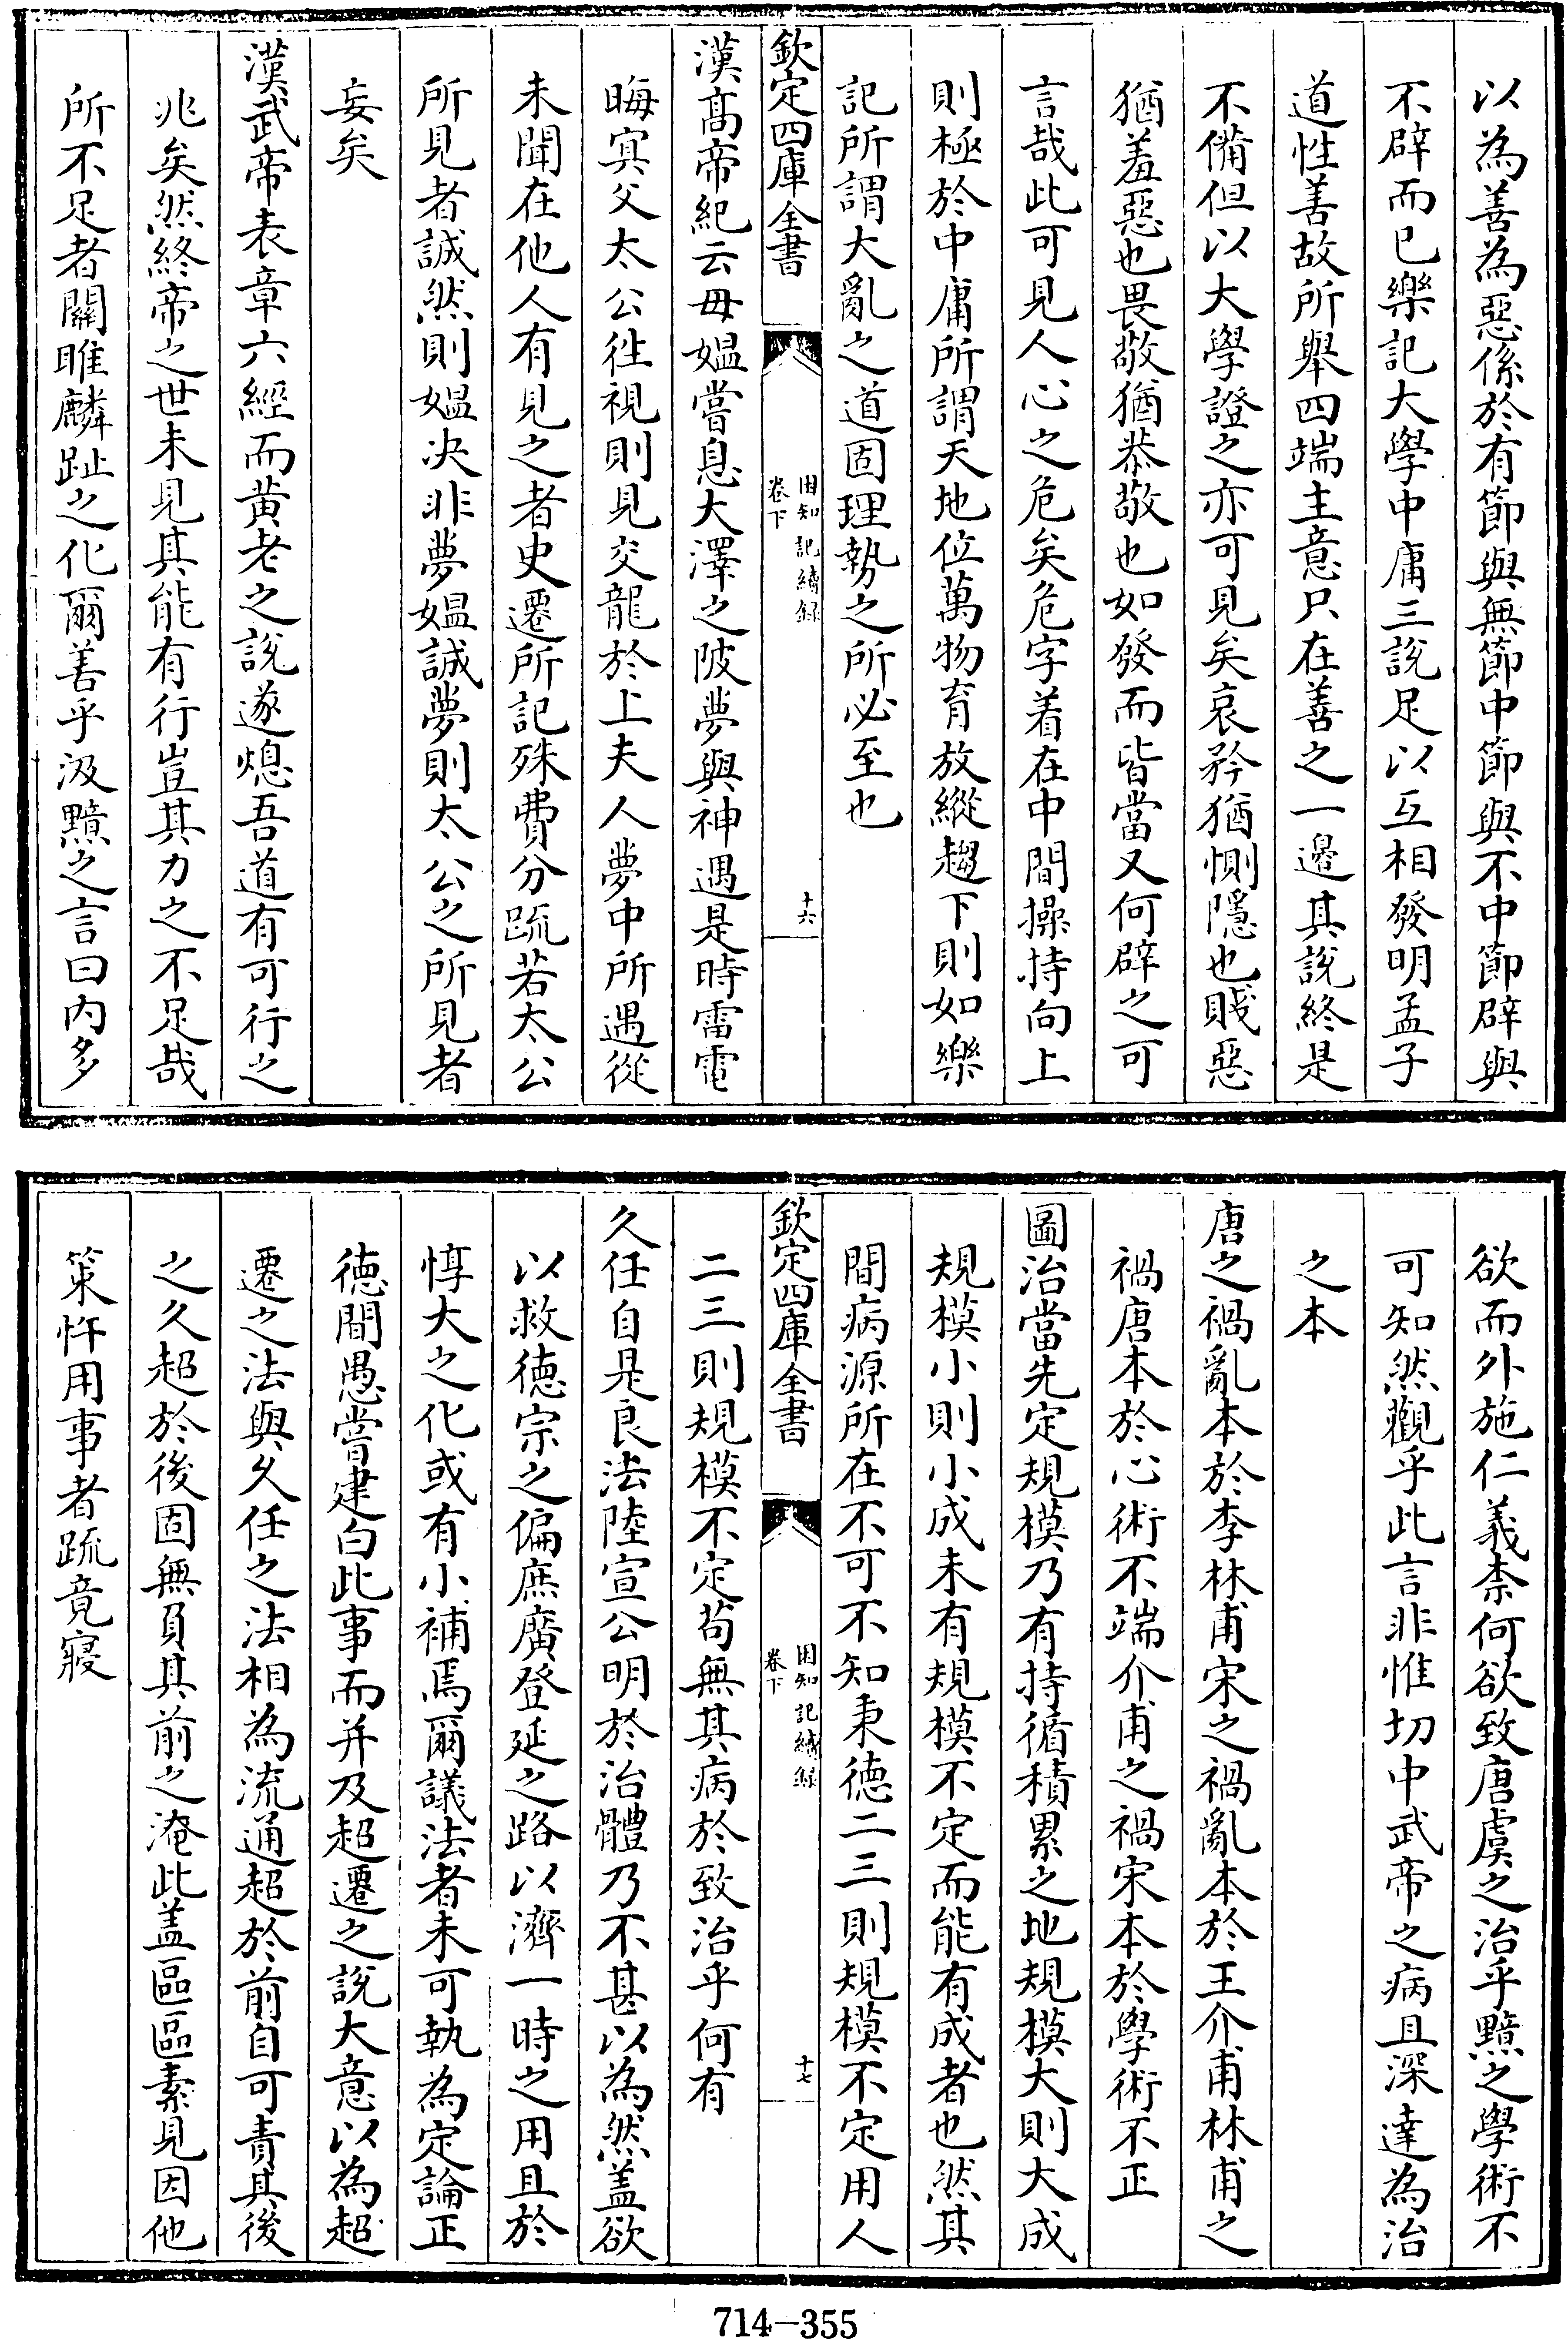 以為善為惡係於有節與無節中節與不中節辟與
不辟而已樂記大學中庸三說足以互相發明孟子
道性善故所舉四端主意只在善之一邉其說終是
不備但以大學證之亦可見矣哀矜猶惻隱也賤惡
猶羞惡也畏敬猶恭敬也如發而皆當又何辟之可
言哉此可見人心之危矣危字着在中間操持向上
則極於中庸所謂天地位萬物育放縱趨下則如樂
記所謂大亂之道固理勢之所必至也
欽定四庫全書
困知記續錄
卷下
十六
漢髙帝紀云母媪嘗息大澤之陂夢與神遇是時雷電
晦冥父太公徃視則見交龍於上夫人夢中所遇從
未聞在他人有見之者史遷所記殊費分疏若太公
所見者誠然則媪决非夢媪誠夢則太公之所見者
妄矣
漢武帝表章六經而黄老之說遂熄吾道有可行之
兆矣然終帝之世未見其能有行豈其力之不足哉
所不足者關雎麟趾之化爾善乎汲黯之言曰内多
欲而外施仁義柰何欲致唐虞之治乎黯之學術不
可知然觀乎此言非惟切中武帝之病且深達為治
之本
唐之禍亂本於李林甫宋之禍亂本於王介甫林甫之
禍唐本於心術不端介甫之禍宋本於學術不正
圖治當先定規模乃有持循積累之地規模大則大成
規模小則小成未有規模不定而能有成者也然其
間病源所在不可不知秉德二三則規模不定用人
欽定四庫全書
困知記續錄
卷下
十七
二三則規模不定苟無其病於致治乎何有
久任自是良法陸宣公明於治體乃不甚以為然盖欲
以救德宗之偏庶廣登延之路以濟一時之用且於
惇大之化或有小補焉爾議法者未可執為定論正
德間愚嘗建白此事而并及超遷之說大意以為超
遷之法與乆任之法相為流通超於前自可責其後
之久超於後固無負其前之淹此盖區區素見因他
策忤用事者疏竟寢
714-355